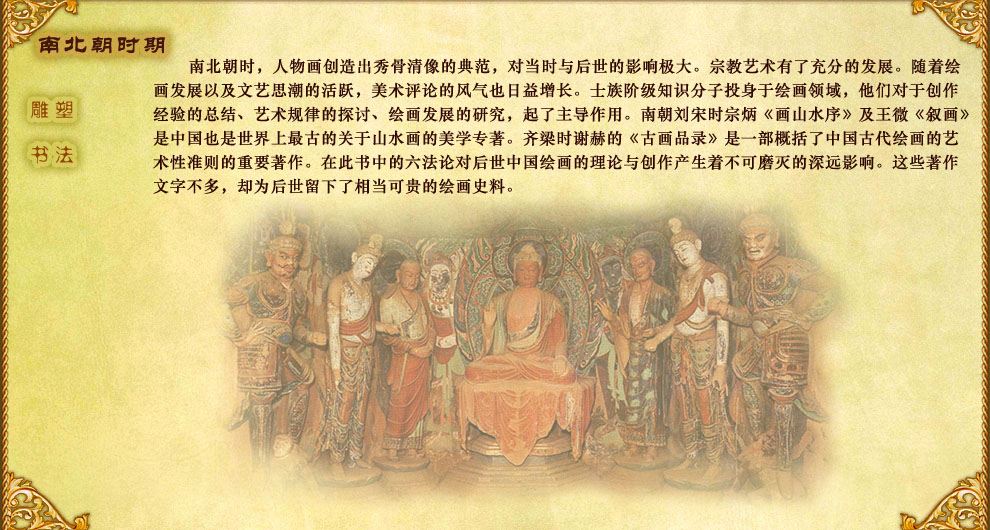 南北朝时期
雕塑
书法
南北朝时，人物画创造出秀骨清像的典范，对当时与后世的影响极大。宗教艺术有了充分的发展。随着绘
画发展以及文艺思潮的活跃，美术评论的风气也日益增长。士族阶级知识分子投身于绘画领域，他们对于创作
经验的总结、艺术规律的探讨、绘画发展的研究，起了主导作用。南朝刘宋时宗炳《画山水序》及王微《叙画》
是中国也是世界上最古的关于山水画的美学专著。齐梁时谢赫的《古画品录》是一部概括了中国古代绘画的艺
术性准则的重要著作。在此书中的六法论对后世中国绘画的理论与创作产生着不可磨灭的深远影响。这些著作
文字不多，却为后世留下了相当可贵的绘画史料。